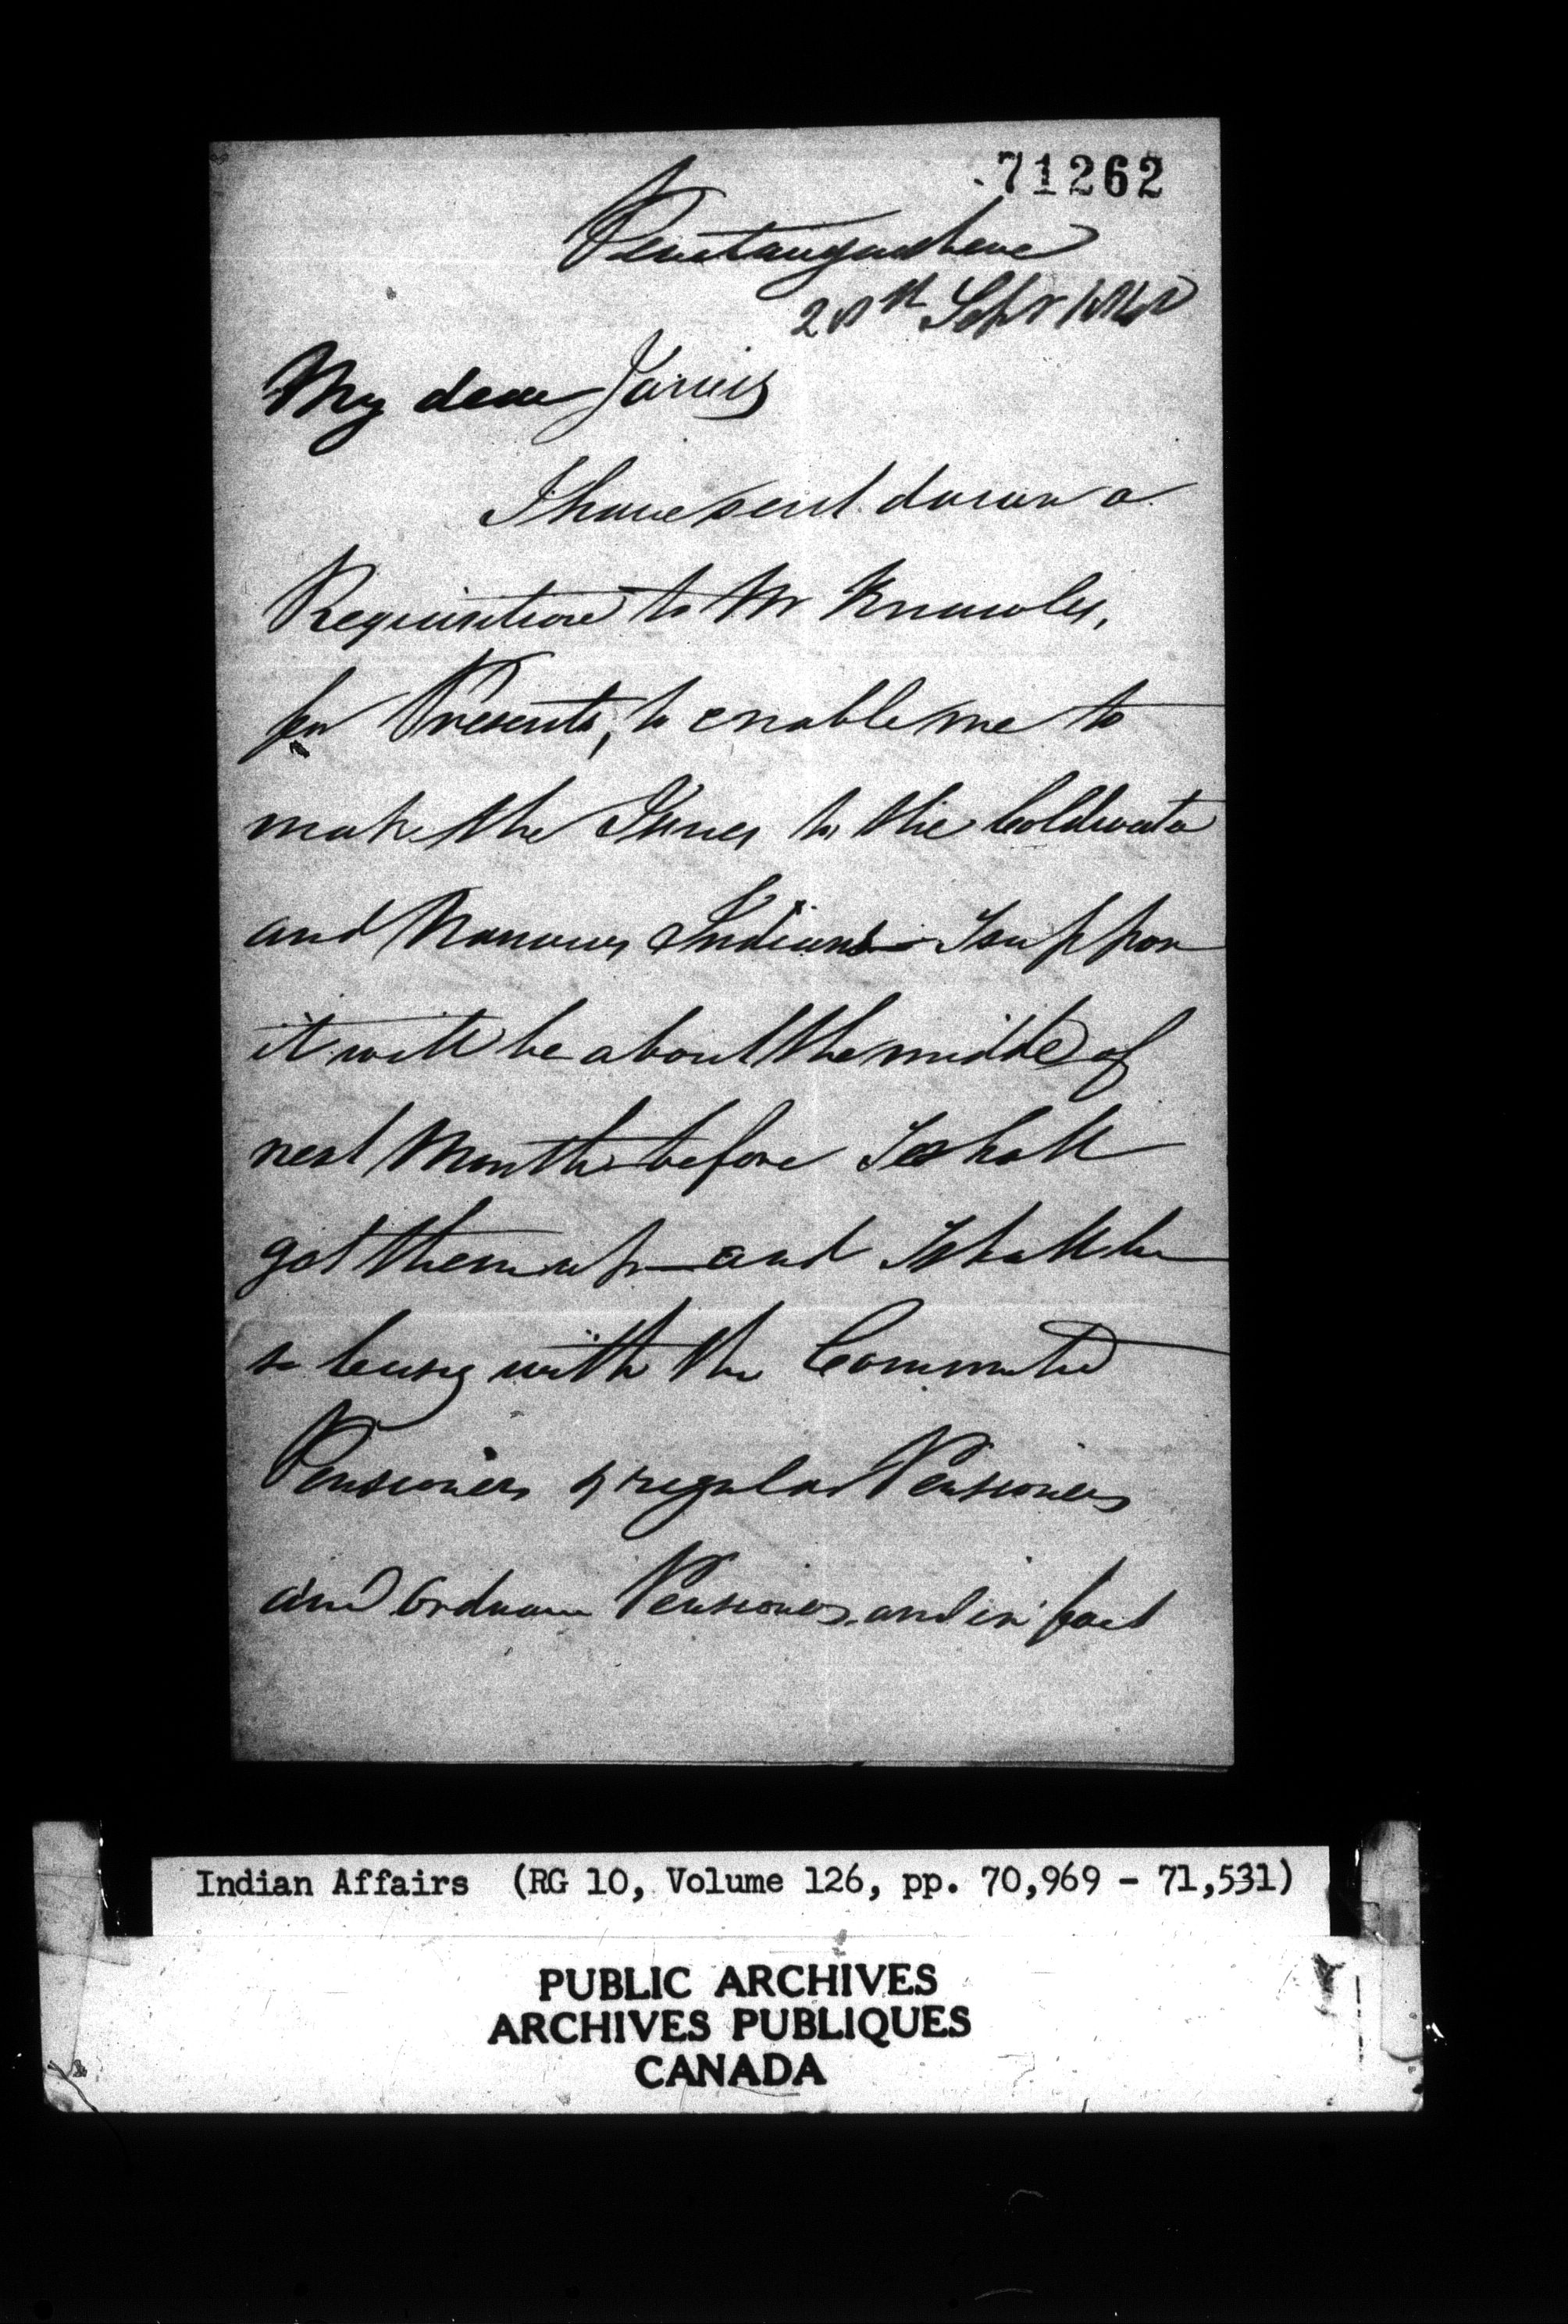 71262
Penetanguishene
20th Septr 1842
My dear Jarvis
I have sent down a
Requisition to Mr Knowles,
for Presents, to enable me to
make the Issues to the Coldwater
and Narrows Indians I suppose
it will be about the middle of
next Month before I shall
get them up — and I shall be
so busy with the Commuted
Pensioners & regular Pensioners
and Ordnance Pensioners and in fact
Indian Affairs (RG 10, Volume 126, pp. 70,969 - 71,531)
PUBLIC ARCHIVES
ARCHIVES PUBLIQUES
CANADA